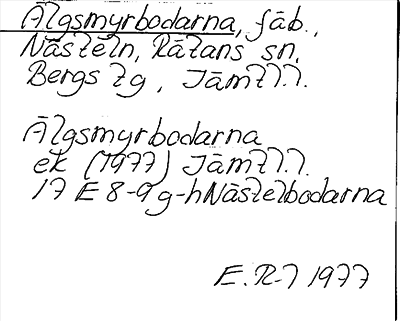 Älgsmyrbodarna, fäb.,
Nästeln, Rätans sn,
Bergs tg, Jämtl.
Älgsmyrbodarna
ek (1977) Jämtl.
17 E 8-9 g-h Nästelbodarna
E. R-7 1977